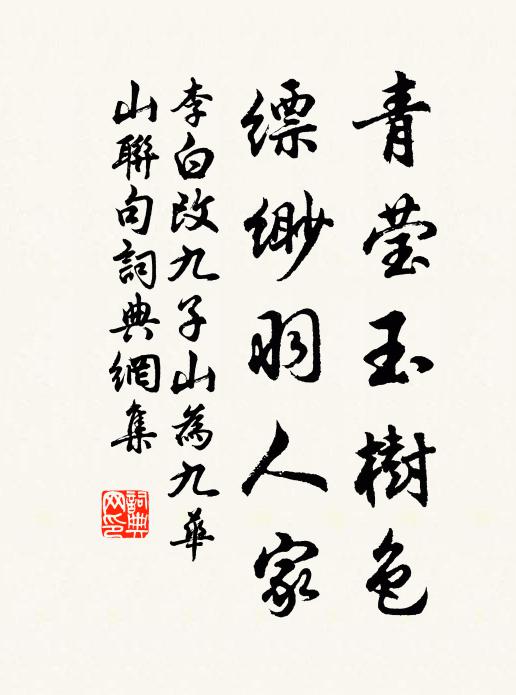 青莹玉樹色
縹緲羽人家
李白改九子山為九華
山聯句詞典網集
詞典网印